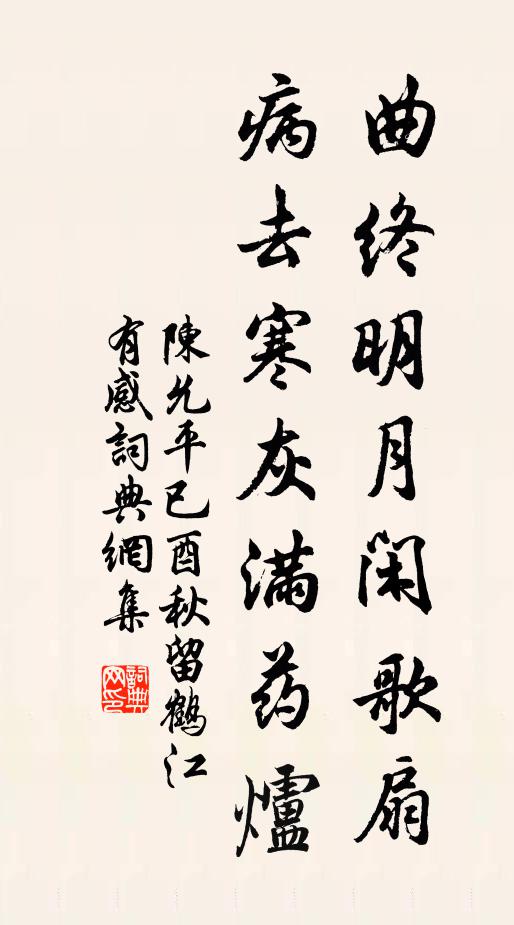 曲终明月闲歌扇
病去寒灰满药爐
陳允平已酉秋留鶴江
有感詞典網集
詞典
网印